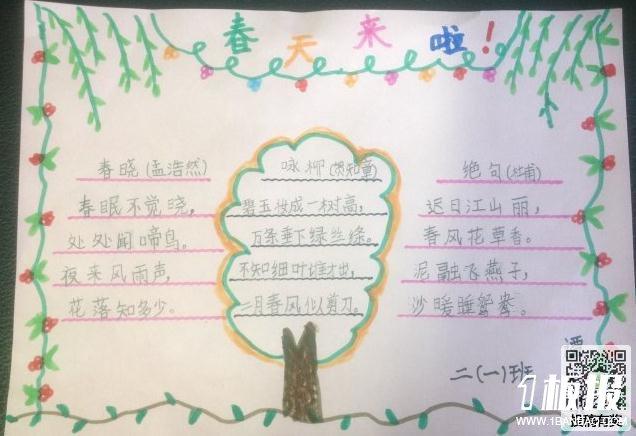 春天来啦!
春晓(孟浩然)
春眠不觉晓,
处处闻啼鸟。
夜来风雨声,
花落知多少。
咏柳(贺知章)
碧玉妆成一树高,
万条垂下绿丝绦。
不知细叶谁才出,
二月春风似剪刀。
绝句(杜甫)
迟日江山丽,
春风花草香。
泥融飞燕子,
沙暖睡鸳鸯。
谭
二(一)班
1板报
WWW.1BANBAO.COM